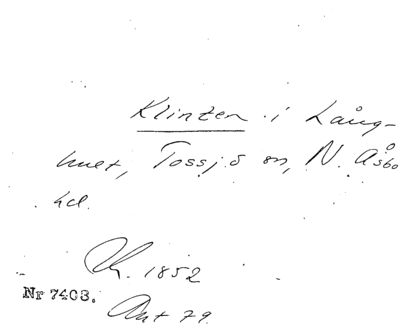 Klinten i Lång-
hult, Tossjö sn, N. Åsbo
hd.
Th. 1852
Nr 7403.
Ant 79.